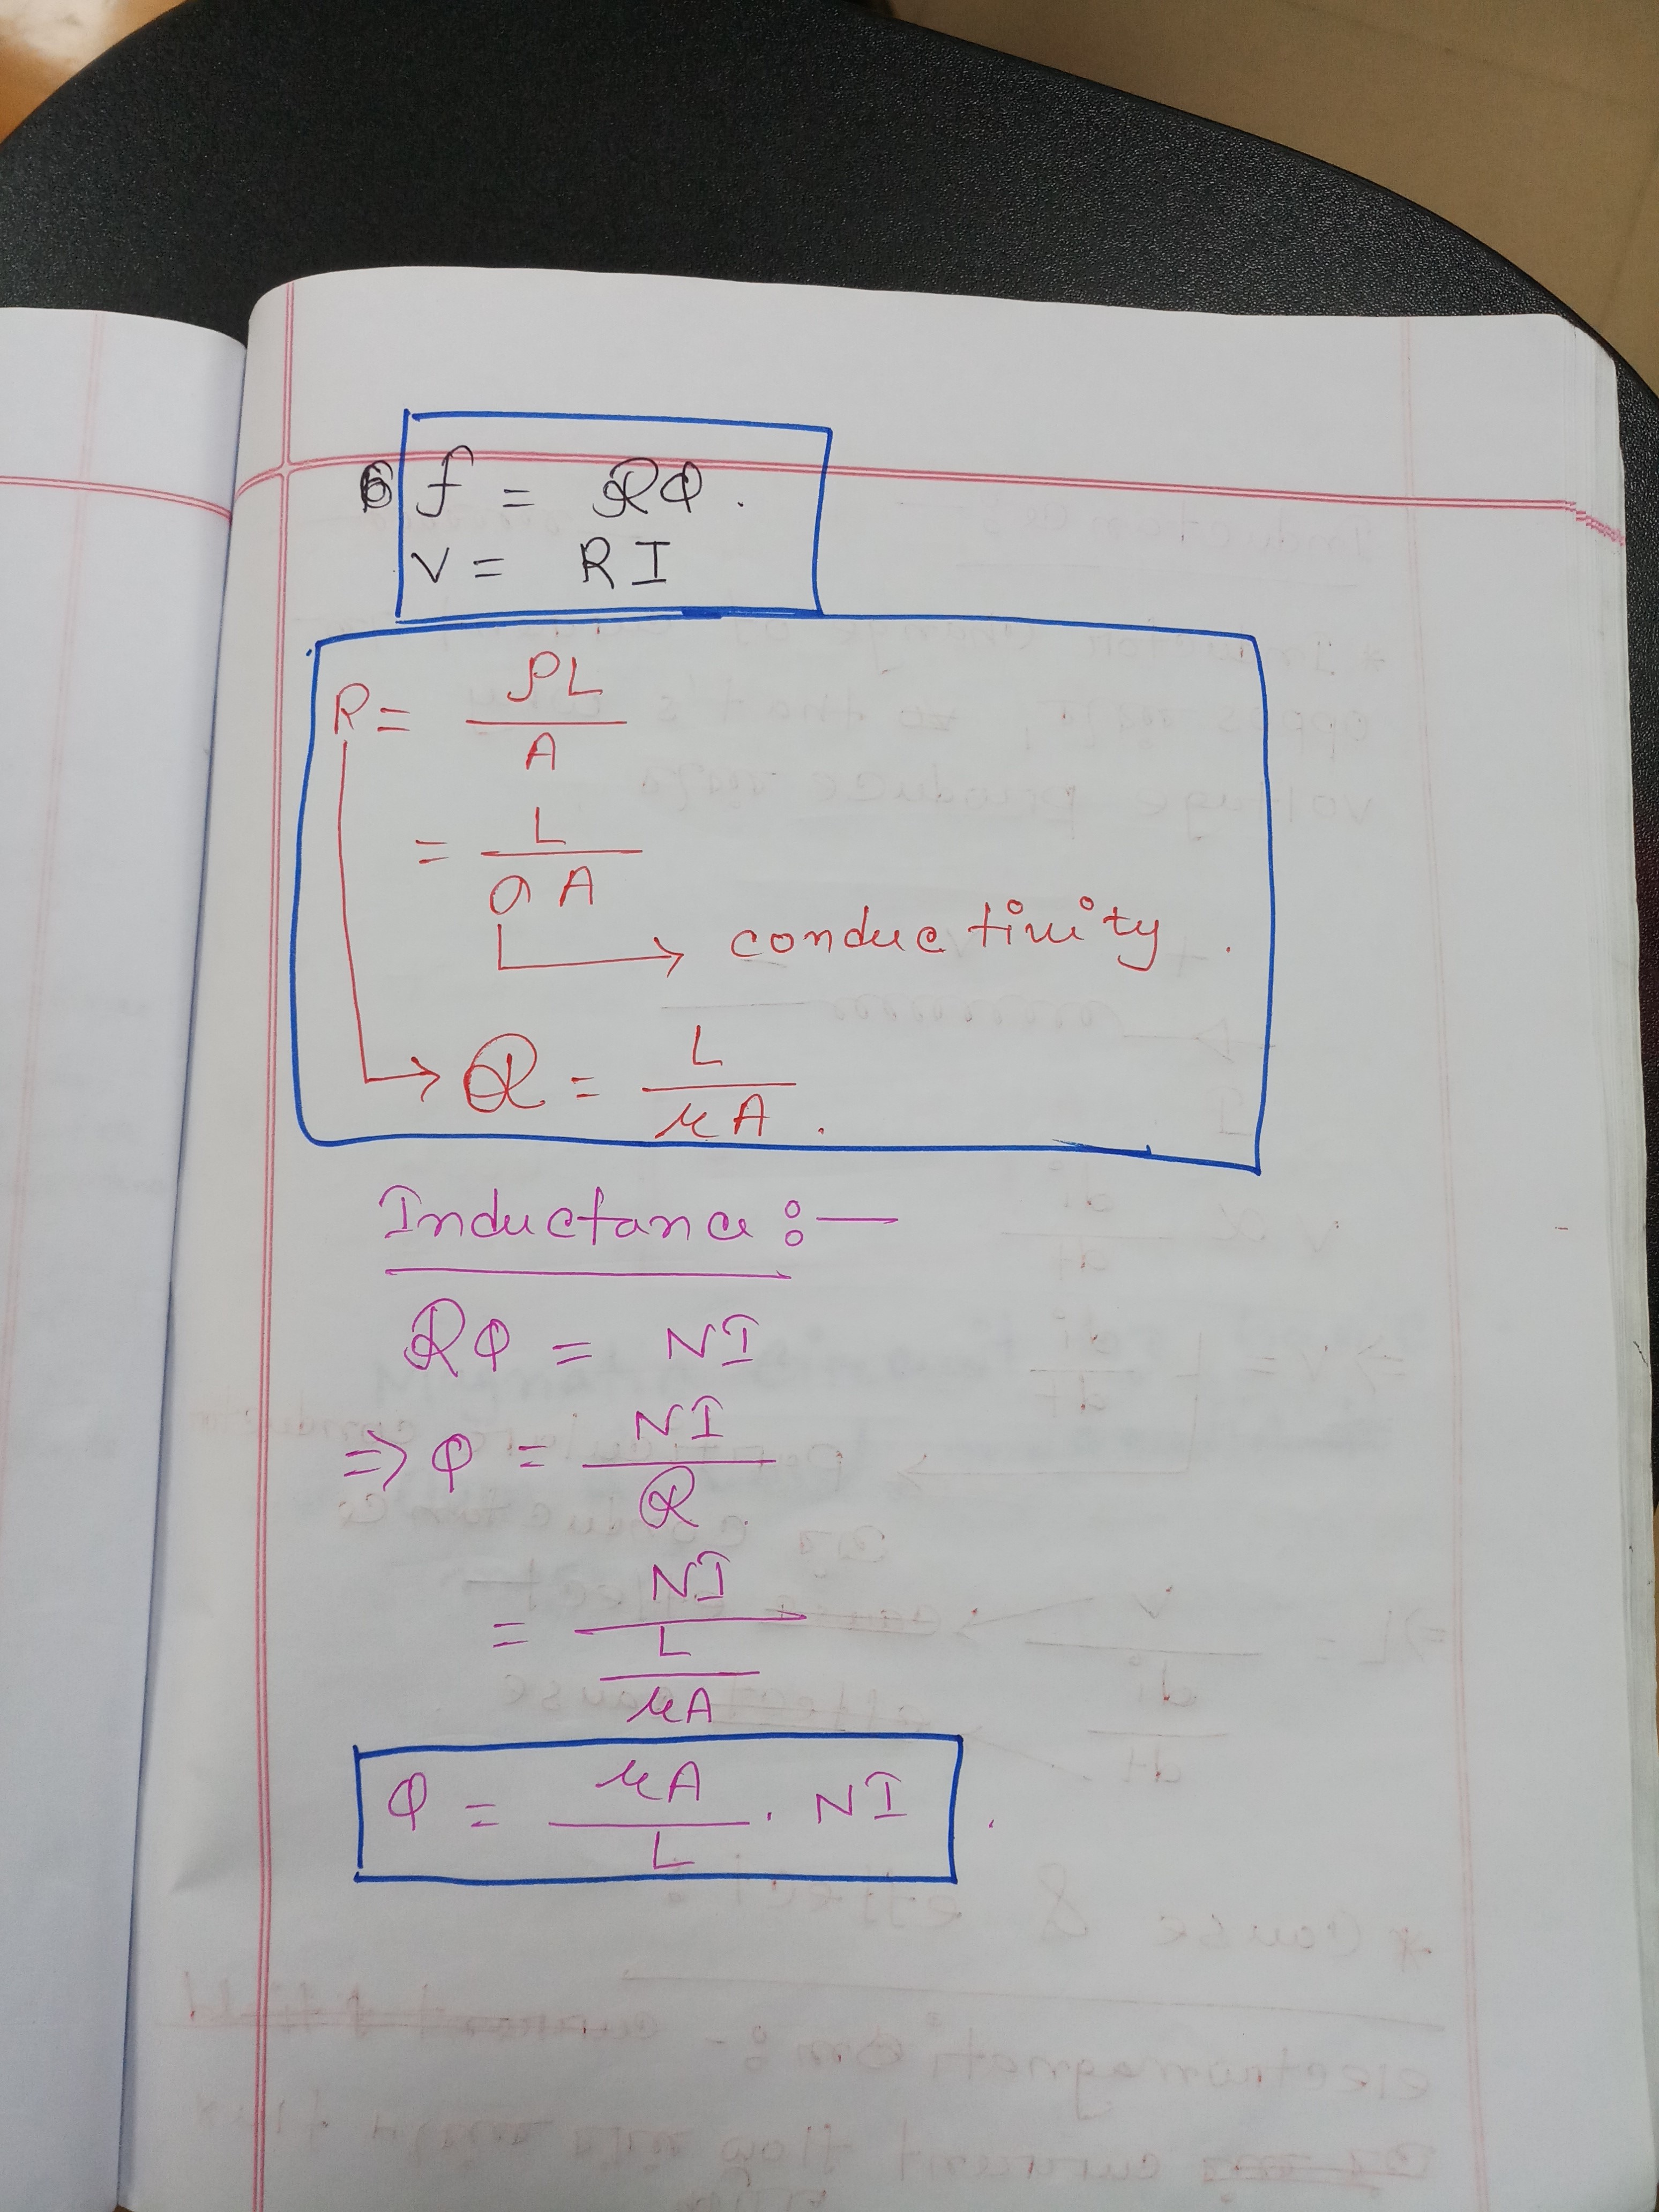 f = ℛφ.
V = RI
R = ρL / A
= L / σA
→ conductivity.
→ ℛ = L / μA.
Inductance :—
ℛφ = NI
⇒ φ = NI / ℛ
= NI / (L / μA)
φ = μA / L . NI .